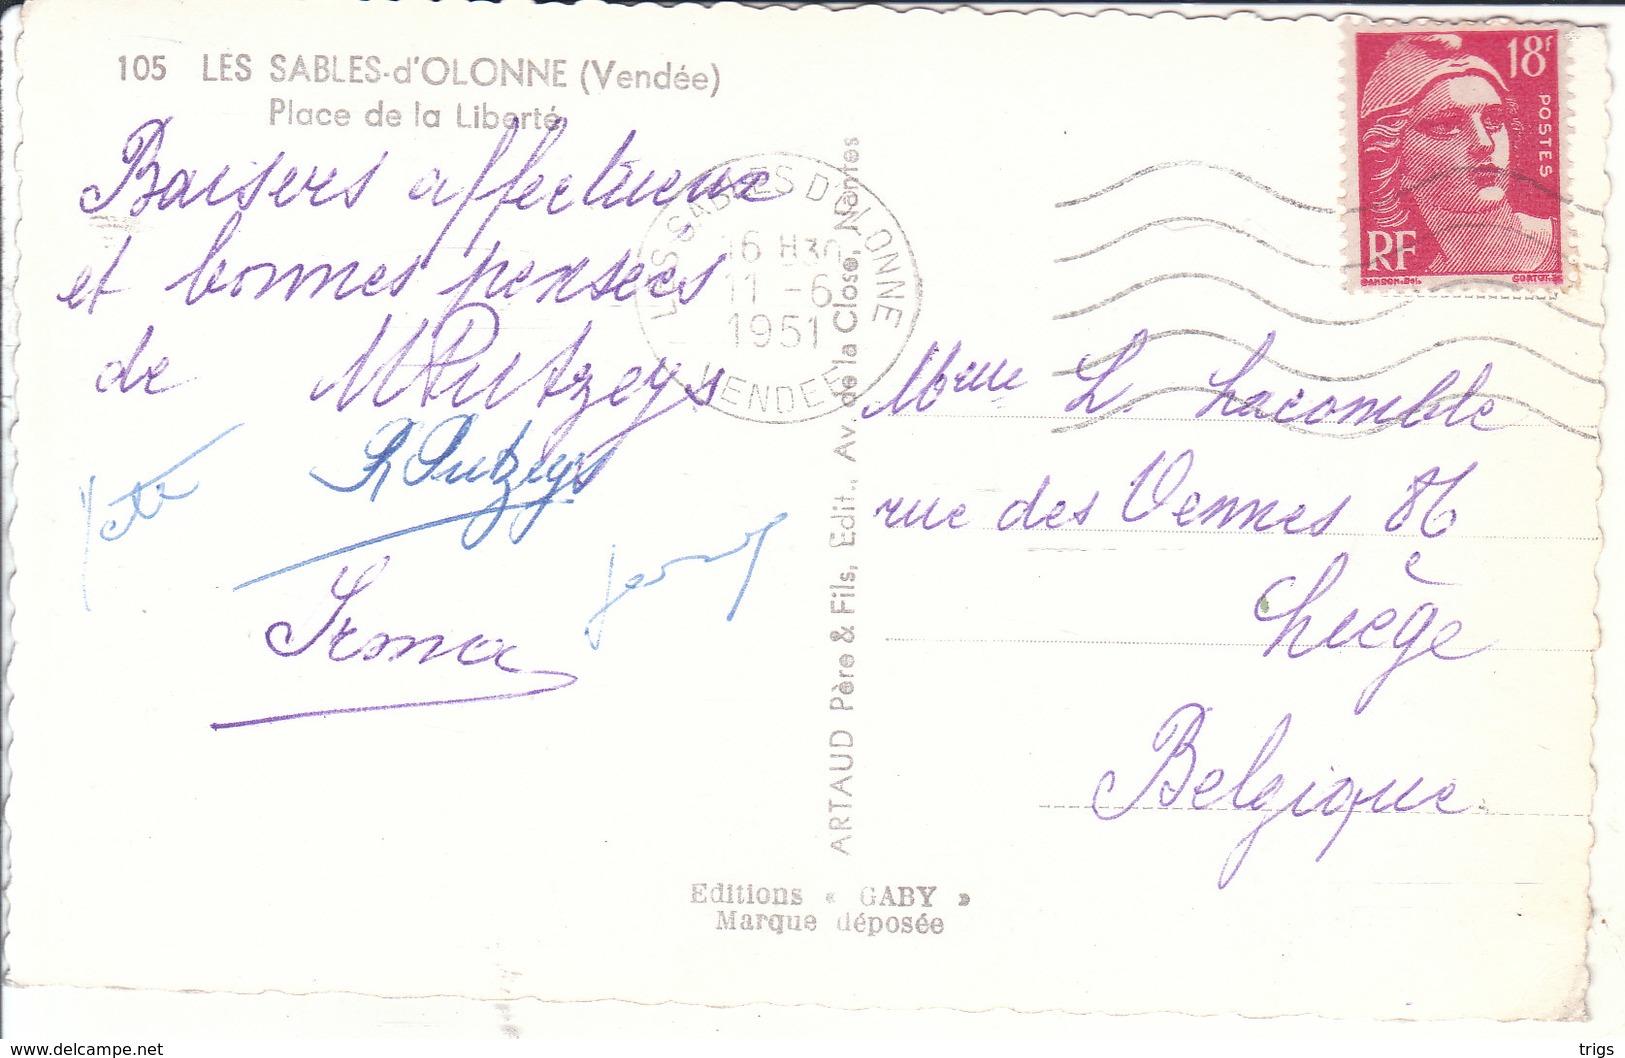 105 LES SABLES-d'OLONNE (Vendée)
Place de la Liberté
Baisers affectueux
et bonnes pensées
de MPutzeys
R Putzeys
Irma
LES SABLES D'OLONNE
16 H30
11 -6
1951
VENDEE
ARTAUD Père & Fils, Edit., Av. de la Close, Nantes
18f
POSTES
RF
GANDON.DEL.
Mme L. Lacomble
rue des Vennes 86
Liège
Belgique
Editions « GABY »
Marque déposée
www.delcampe.net
trigs